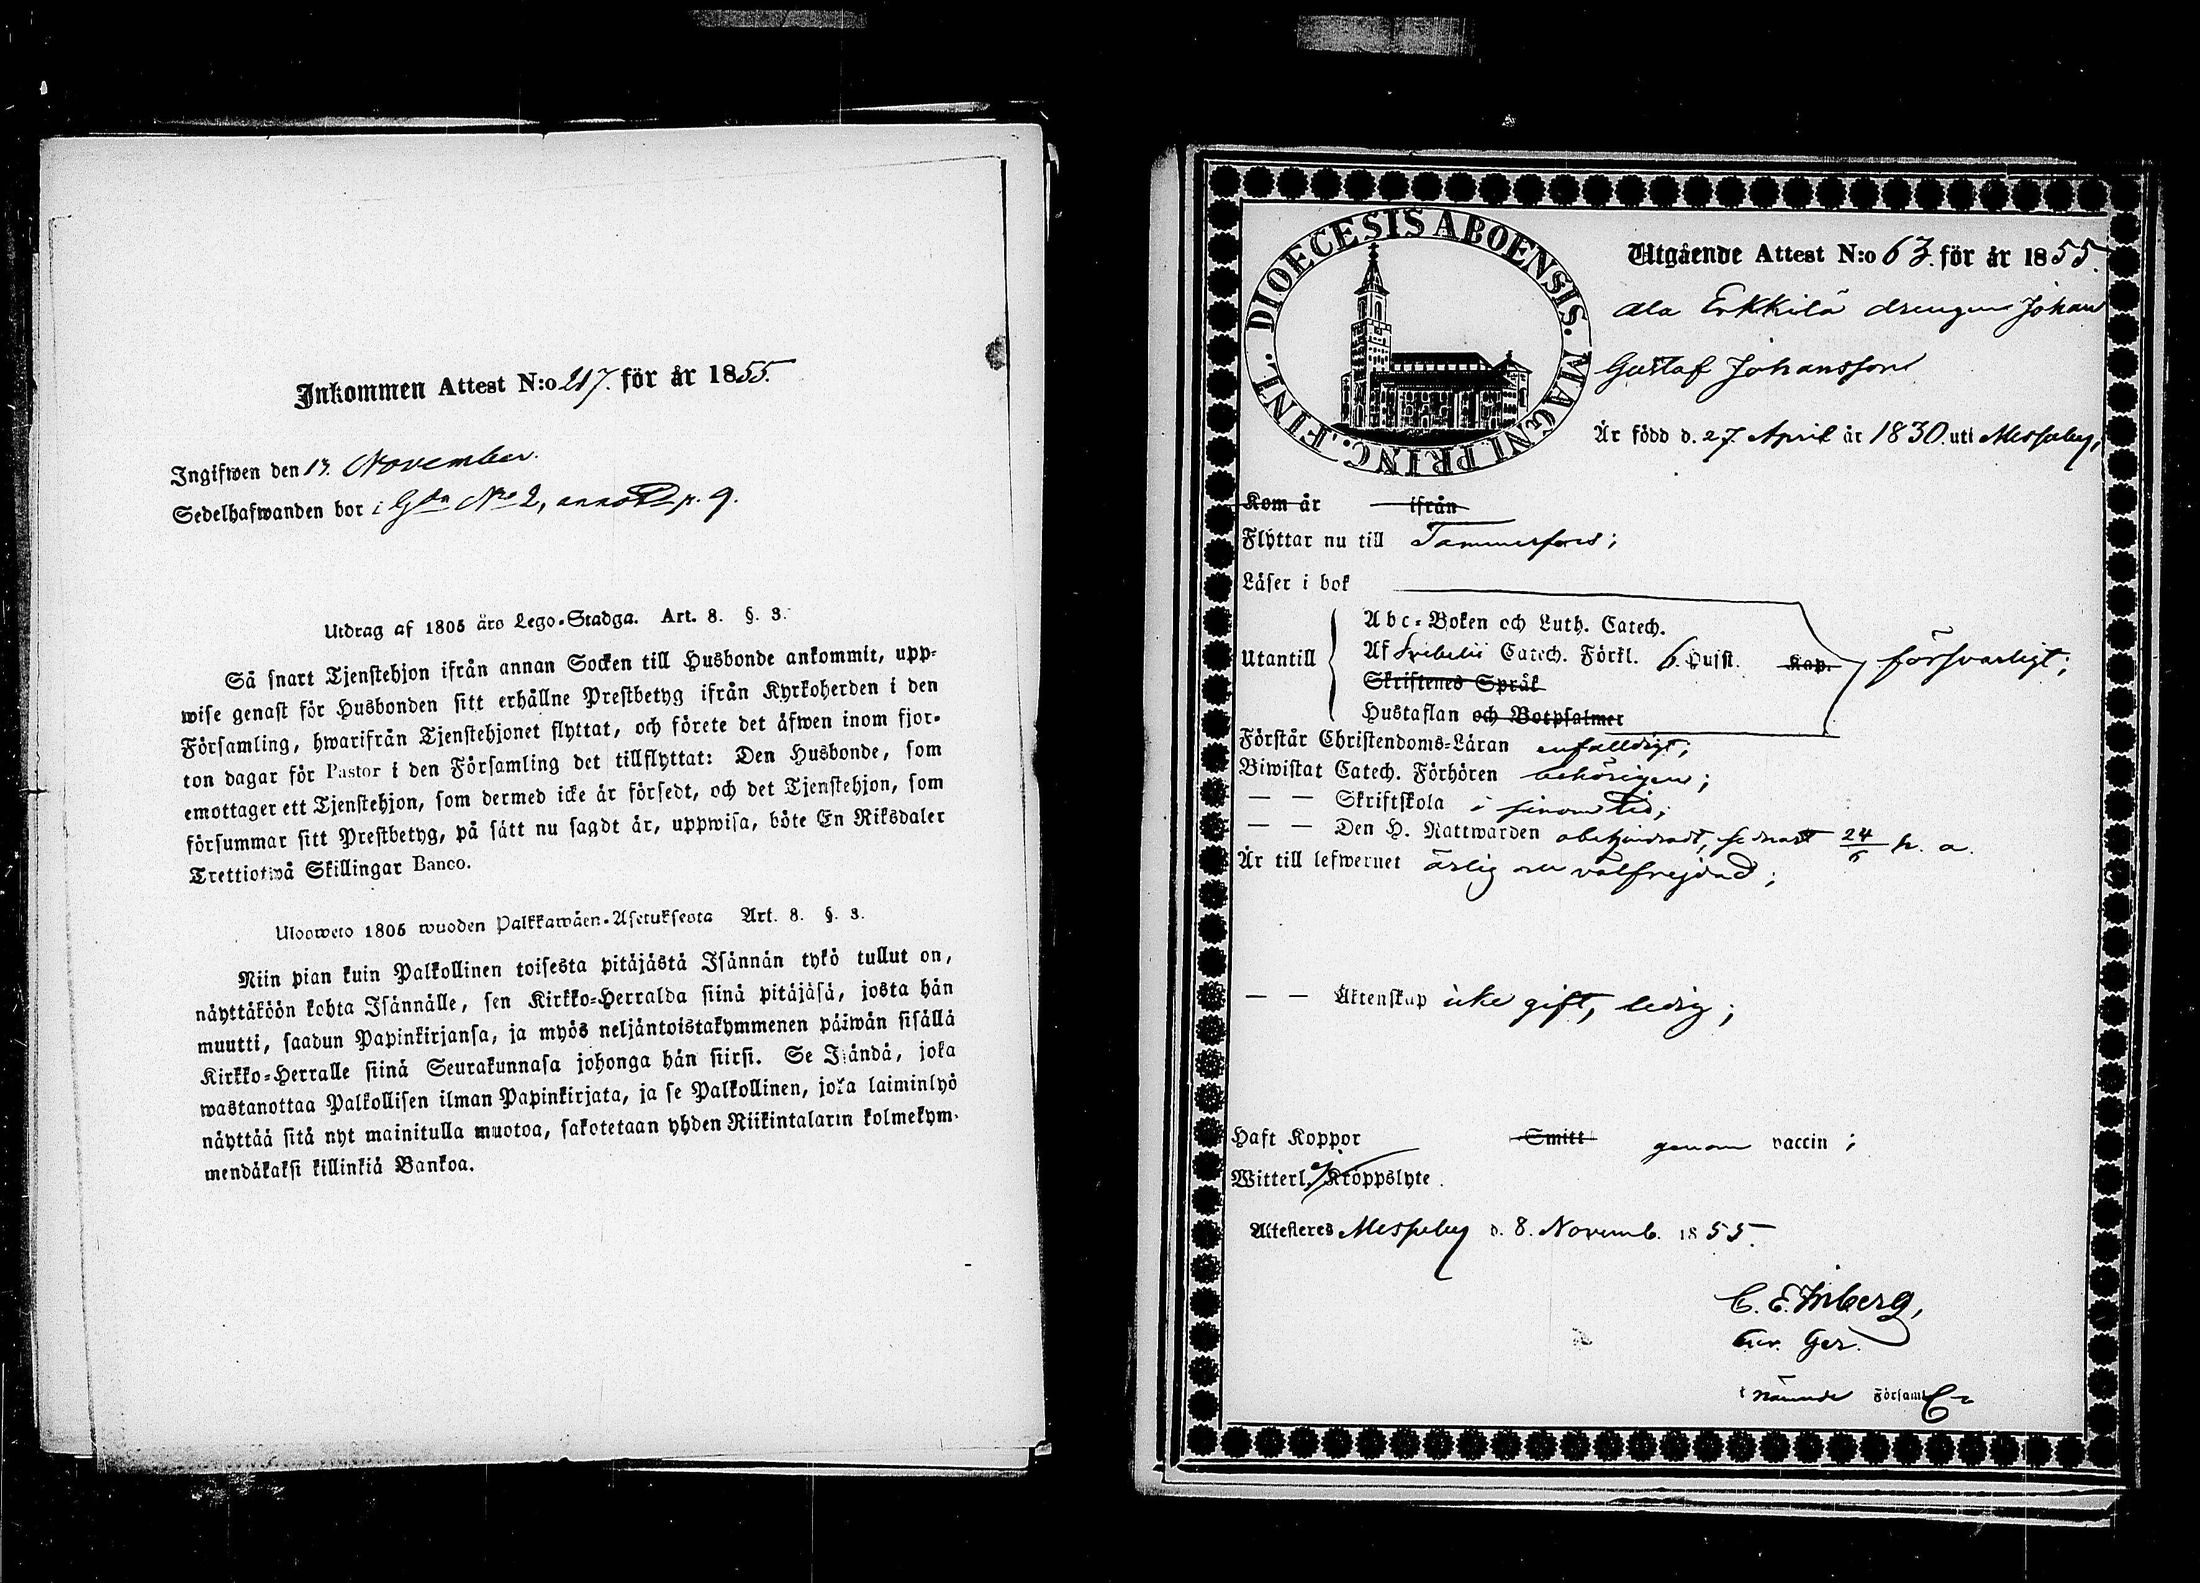 Inkommen Attest N:o 217. för år 1855.
Ingifwen den 13. November.
Sedelhafwanden bor i Gdn No 2, annot p. 9.
Utdrag af 1805 års Lego-Stadga. Art. 8. §. 3.
Så snart Tjenstehjon ifrån annan Socken till Husbonde ankommit, upp-
wise genast för Husbonden sitt erhållne Prestbetyg ifrån Kyrkoherden i den
Församling, hwarifrån Tjenstehjonet flyttat, och förete det äfwen inom fjor-
ton dagar för Pastor i den Församling det tillflyttat: Den Husbonde, som
emottager ett Tjenstehjon, som dermed icke är försedt, och det Tjenstehjon, som
försummar sitt Prestbetyg, på sätt nu sagdt är, uppwisa, böte En Riksdaler
Trettiotwå Skillingar Banco.
Ulosweto 1805 wuoden Palkkawäen-Asetuksesta Art. 8. §. 3.
Niin pian kuin Palkollinen toisesta pitäjästä Isännän tykö tullut on,
näyttäköön kohta Isännälle, sen Kirkko-Herralda siinä pitäjäsä, josta hän
muutti, saadun Papinkirjansa, ja myös neljäntoistakymmenen päiwän sisällä
Kirkko-Herralle siinä Seurakunnasa johonga hän siirsi. Se Isändä, joka
wastanottaa Palkollisen ilman Papinkirjata, ja se Palkollinen, joka laiminlyö
näyttää sitä nyt mainitulla muotoa, sakotetaan yhden Riikintalarin kolmekym-
mendäkaksi killinkiä Bankoa.
DIOECESIS ABOENSIS. MAGNI PRINC. FINL.
Utgående Attest N:o 63. för år 1855.
Ala Erkkilä drengen Johan
Gustaf Johansson
Är född d. 27. April år 1830. uti Messuby,
Kom år ifrån
Flyttar nu till Tammerfors;
Läser i bok
Abc-Boken och Luth. Catech.
Utantill Af Svebelii Catech. Förkl. 6. Hufst. Kap. försvarligt;
Skriftenes Språk
Hustaflan och Botpsalmer
Förstår Christendoms-Läran enfalldigt;
Biwistat Catech. Förhören behörigen;
— — Skriftskola i sinom tid;
— — Den H. Nattwarden obehindradt, sednast 24/6 h. a.
Är till lefwernet ärlig och välfrejdad;
— — Äktenskap icke gift, ledig;
Haft Koppor Smitt genom vaccin;
Witterl. ej Kroppslyte.
Attesteres Messuby d. 8. Novemb. 1855.
C. E. Inberg,
i nämnde Församl.